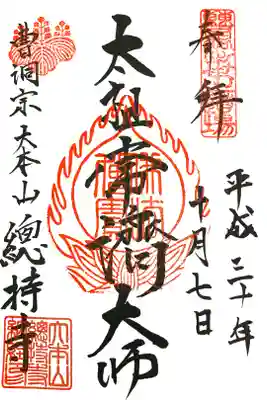 奉拝
平成三十年
十月七日
太祖常濟大師
曹洞宗大本山總持寺